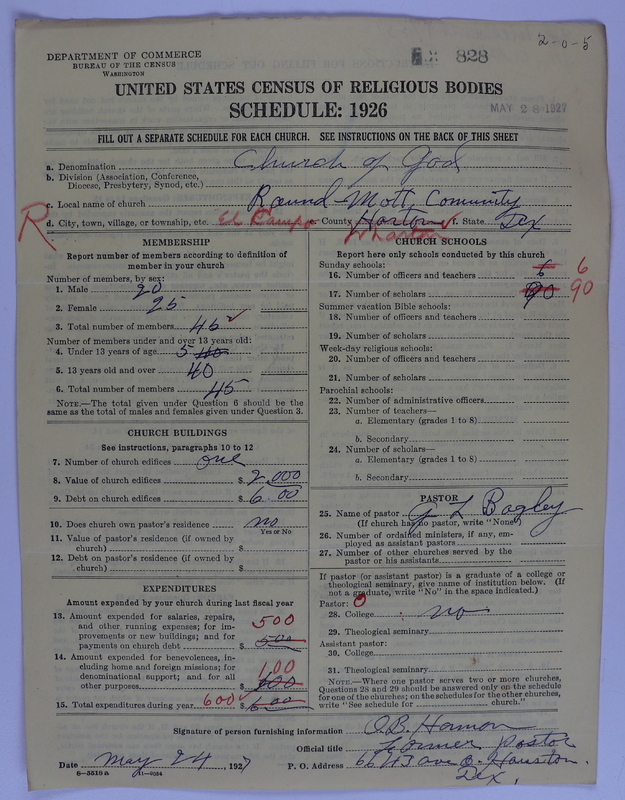 2-0-5
DEPARTMENT OF COMMERCE
BUREAU OF THE CENSUS
WASHINGTON
828
UNITED STATES CENSUS OF RELIGIOUS BODIES
SCHEDULE: 1926
MAY 28 1927
FILL OUT A SEPARATE SCHEDULE FOR EACH CHURCH. SEE INSTRUCTIONS ON THE BACK OF THIS SHEET
a. Denomination Church of God
b. Division (Association, Conference,
Diocese, Presbytery, Synod, etc.)
c. Local name of church Round-Mott Community
R d. City, town, village, or township, etc. El Campo e. County Wharton f. State Tex
MEMBERSHIP
Report number of members according to definition of
member in your church
Number of members, by sex:
1. Male 20
2. Female 25
3. Total number of members 45
Number of members under and over 13 years old:
4. Under 13 years of age 5 40
5. 13 years old and over 40
6. Total number of members 45
NOTE.—The total given under Question 6 should be
same as the total of males and females given under Question 3.
CHURCH BUILDINGS
See instructions, paragraphs 10 to 12
7. Number of church edifices one
8. Value of church edifices $ 2,000
9. Debt on church edifices $ 6 00
10. Does church own pastor's residence no
Yes or No
11. Value of pastor's residence (if owned by
church) $
12. Debt on pastor's residence (if owned by
church) $
EXPENDITURES
Amount expended by your church during last fiscal year
13. Amount expended for salaries, repairs,
and other running expenses; for im-
provements or new buildings; and for
payments on church debt $ 500 500
14. Amount expended for benevolences, in-
cluding home and foreign missions; for
denominational support; and for all
other purposes 100
15. Total expenditures during year 600 $ 6 00
CHURCH SCHOOLS
Report here only schools conducted by this church
Sunday schools:
16. Number of officers and teachers 6 6
17. Number of scholars 90 90
Summer vacation Bible schools:
18. Number of officers and teachers
19. Number of scholars
Week-day religious schools:
20. Number of officers and teachers
21. Number of scholars
Parochial schools:
22. Number of administrative officers
23. Number of teachers—
a. Elementary (grades 1 to 8)
b. Secondary
24. Number of scholars—
a. Elementary (grades 1 to 8)
b. Secondary
PASTOR
25. Name of pastor G L Bagley
(If church has no pastor, write "None")
26. Number of ordained ministers, if any, em-
ployed as assistant pastors
27. Number of other churches served by the
pastor or his assistants
If pastor (or assistant pastor) is a graduate of a college or
theological seminary, give name of institution below. (If
not a graduate, write "No" in the space indicated.)
Pastor: 0
28. College no
29. Theological seminary
Assistant pastor:
30. College
31. Theological seminary
NOTE.—Where one pastor serves two or more churches,
Questions 28 and 29 should be answered only on the schedule
for one of the churches; on the schedules for the other churches,
write "See schedule for church."
Signature of person furnishing information O.B. Harmon
Official title Former Pastor
Date May 24, 1927 P. O. Address 6643 ave O. Houston
Tex.
8—5518 a 11—9054